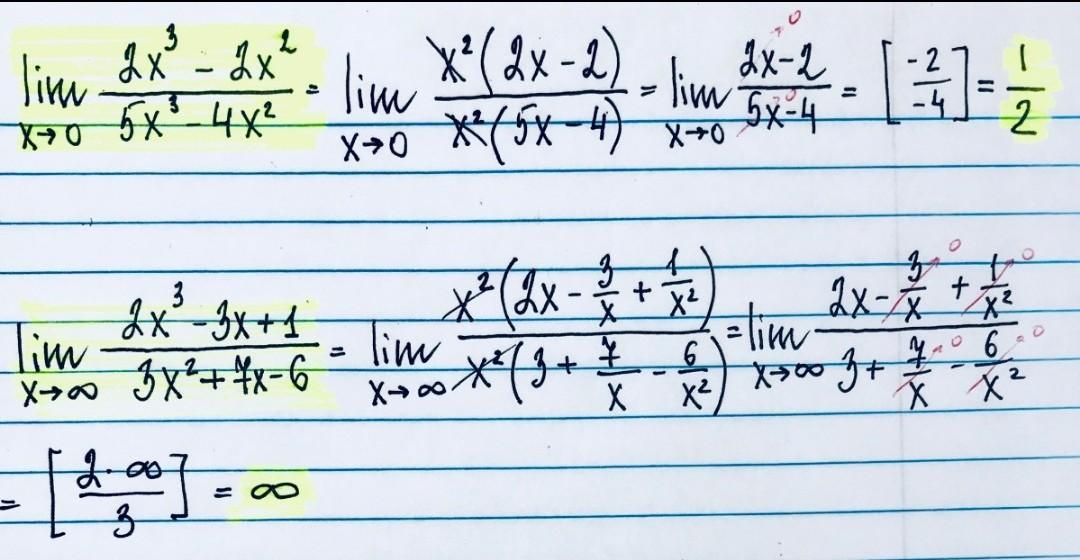 lim x→0 (2x³ - 2x²)/(5x³ - 4x²) = lim x→0 x²(2x - 2)/x²(5x - 4) = lim x→0 (2x→0 - 2)/(5x→0 - 4) = [-2/-4] = 1/2
lim x→∞ (2x³ - 3x + 1)/(3x² + 7x - 6) = lim x→∞ x²(2x - 3/x + 1/x²)/x²(3 + 7/x - 6/x²) = lim x→∞ (2x - 3/x→0 + 1/x²→0)/(3 + 7/x→0 - 6/x²→0)
= [2·∞/3] = ∞